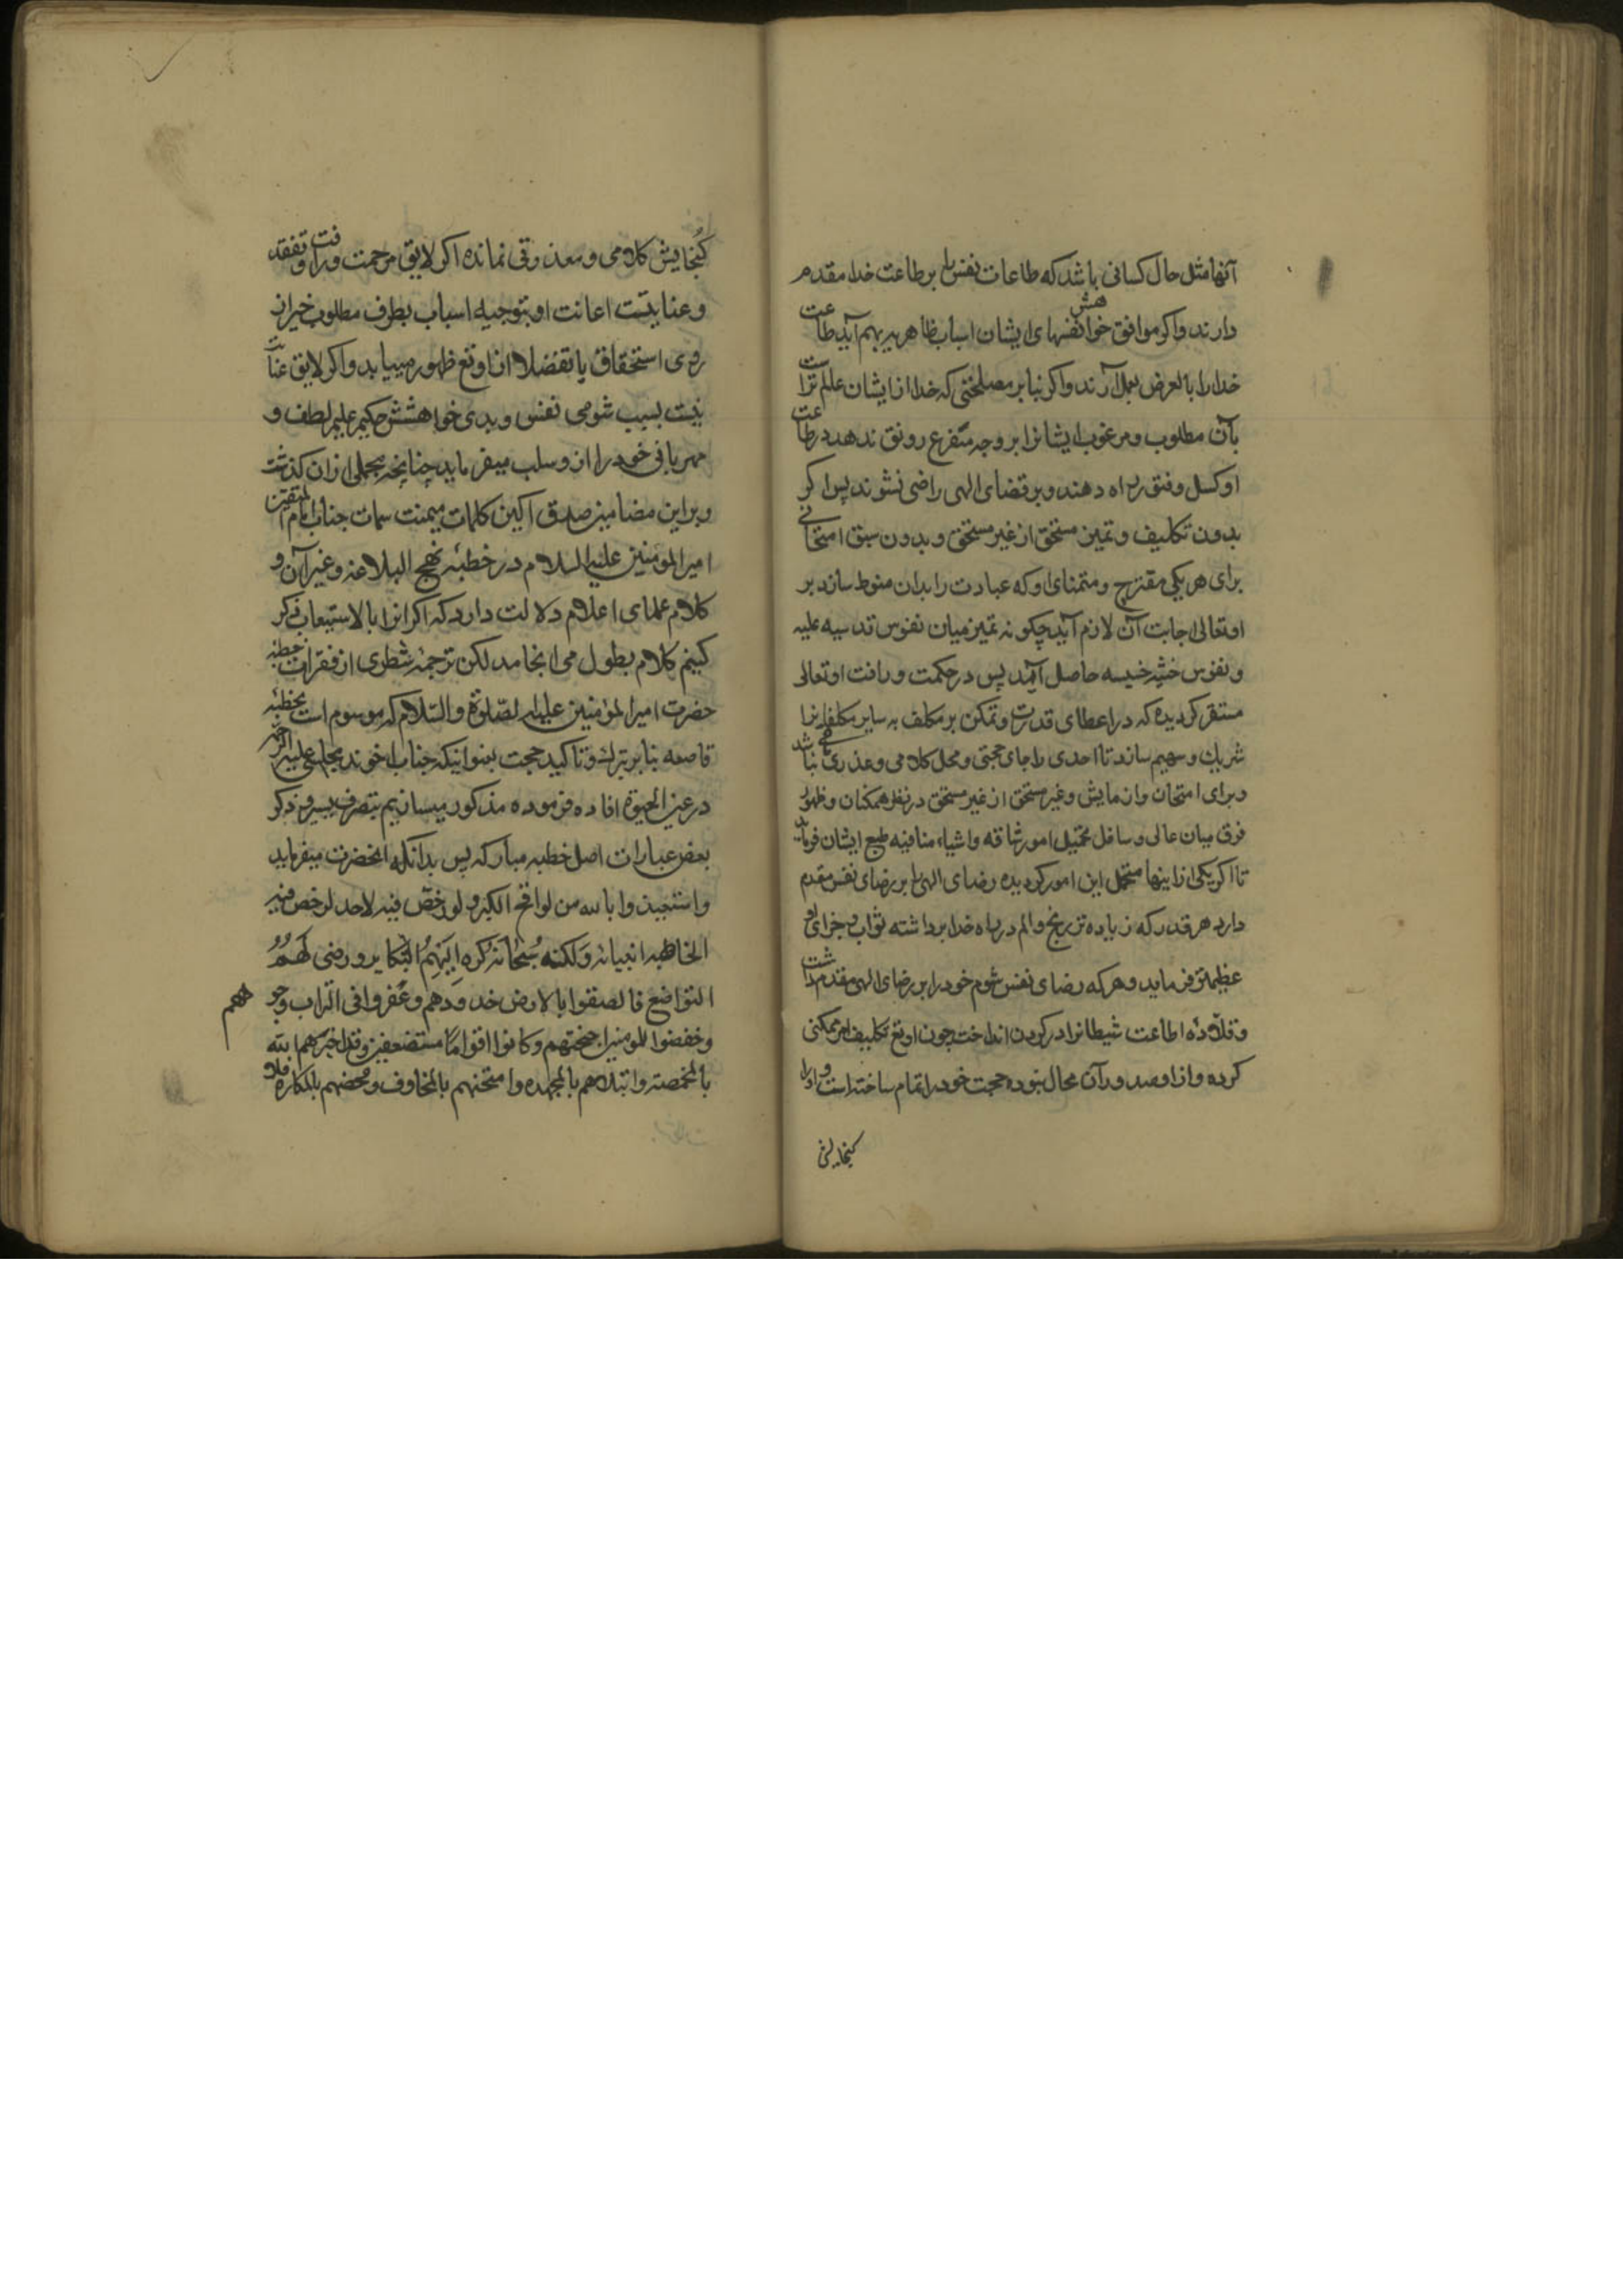 آنها مثل حال کسانی باشد که طاعات نفس را بر طاعت خدا مقدم
دارند واکر موافق خواهش نفسهای ایشان اسباب ظاهریه بهم آید طاعت
خدا را بالعرض بعمل آرند واکر بنابر مصلحتی که خدا از ایشان عالم تر است
بآن مطلوب و مرغوب ایشانرا بر وجه متفرع رونق ندهد در طاعت
او کسل و فتور راه دهند و بر قضای الهی راضی نشوند پس اکر
بدون تکلیف و تمیز مستحق از غیر مستحق و بدون سبق امتحانی
برای هر یکی مقترح و متمنای او که عبادت را بدان منوط سازد بر
او تعالی اجابت آن لازم آید چکونه تمیز میان نفوس قدسیه علیه
و نفوس خبیثه خسیسه حاصل آید پس در حکمت و رافت او تعالی
مستقر کردیده که در اعطای قدرت و تمکن بر مکلف به سایر مکلفانرا
شریک و سهیم سازد تا احدی را جای حجتی و محل کلامی و عذری نباشد
و برای امتحان و ازمایش و غیر مستحق از غیر مستحق در نظر همکنان و ظهور
فرق میان عالی و سافل تحمیل امور شاقه و اشیاء منافیه طبع ایشان فرماید
تا اکر یکی از اینها متحمل این امور کردیده رضای الهی را بر رضای نفس مقدم
دارد هر قدر که زیاده تر رنج و الم در راه خدا برداشته ثواب و جزای او
عظیمتر فرماید و هر که رضای نفس شوم خود را بر رضای الهی مقدم داشت
و قلّادهٔ اطاعت شیطانرا در کردن انداخت چون او تع تکلیف امر ممکنی
کرده و از او صدور آن محال نبوده حجت خود را تمام ساخته است و او را
کنجایش
کُنجایش کلامی و معذوقی نمانده اکر لایق مرحمت و رافت و تفقد
و عنایتست اعانت او بتوجیه اسباب بطرف مطلوب خیر از
روی استحقاق یا تفضلا از او تع ظهور مییابد واکر لایق عنایت
نیست بسبب شومی نفس و بدی خواهشش حکیم علیم لطف و
مهربانی خود را از و سلب میفرماید چنانچه مجملی ازان کذشت
و بر این مضامین صدق آکین کلمات میمنت سمات جناب امام المتقین
امیر المومنین علیه السلام در خطبهٔ نهج البلاغه و غیر آن و
کلام علمای اعلام دلالت دارد که اکر انرا بالاستیعاب ذکر
کنیم کلام بطول می انجامد لکن ترجمهٔ شطری از فقرات خطبه
حضرت امیر المؤمنین علیه الصّلوة والسّلام که موسوم است بخطبهٔ
قاصعه بنابر تبرک و تاکید حجت بعنوانیکه جناب اخوند مجلسی علیه الرحمه
در عین الحیوة افاده فرموده مذکور میسازیم بتصرف یسیر و ذکر
بعض عبارات اصل خطبه مبارکه پس بدانکه انحضرت میفرماید
واستعیذوا بالله من لواقح الکبر و لو رخّص فیه لاحد لرخص فیه
لخاصّة انبیائه وَلکنه سُبحانَهُ کرّه اِلَیهِمُ التّکابر ورضی لَهُمُ
التواضع فالصقوا بالارض خدودهم وعفّروا فی التراب وجوههم
وخفضوا للمومنین اجنحتهم وکانوا اقواماً مستضعفین وقد اختبرهم الله
بالمخمصة وابتلاهم بالمجهده وامتحنهم بالمخاوف ومحضهم بالمکاره فلا